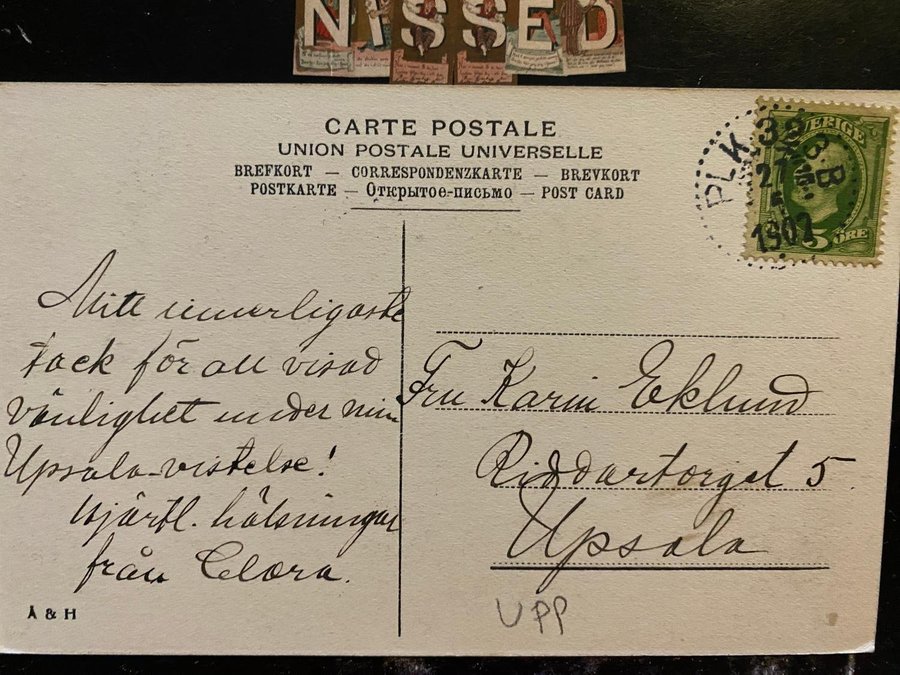 NISSED
CARTE POSTALE
UNION POSTALE UNIVERSELLE
BREFKORT — CORRESPONDENZKARTE — BREVKORT
POSTKARTE — Открытое-письмо — POST CARD
SVERIGE
5 ÖRE
PLK. 33.B
27
1902
Mitt innerligaste
tack för all visad
vänlighet under min
Upsala-vistelse!
Hjärtl. hälsningar
från Clara.
Fru Karin Eklund
Riddartorget 5.
Upsala
UPP
Å & H